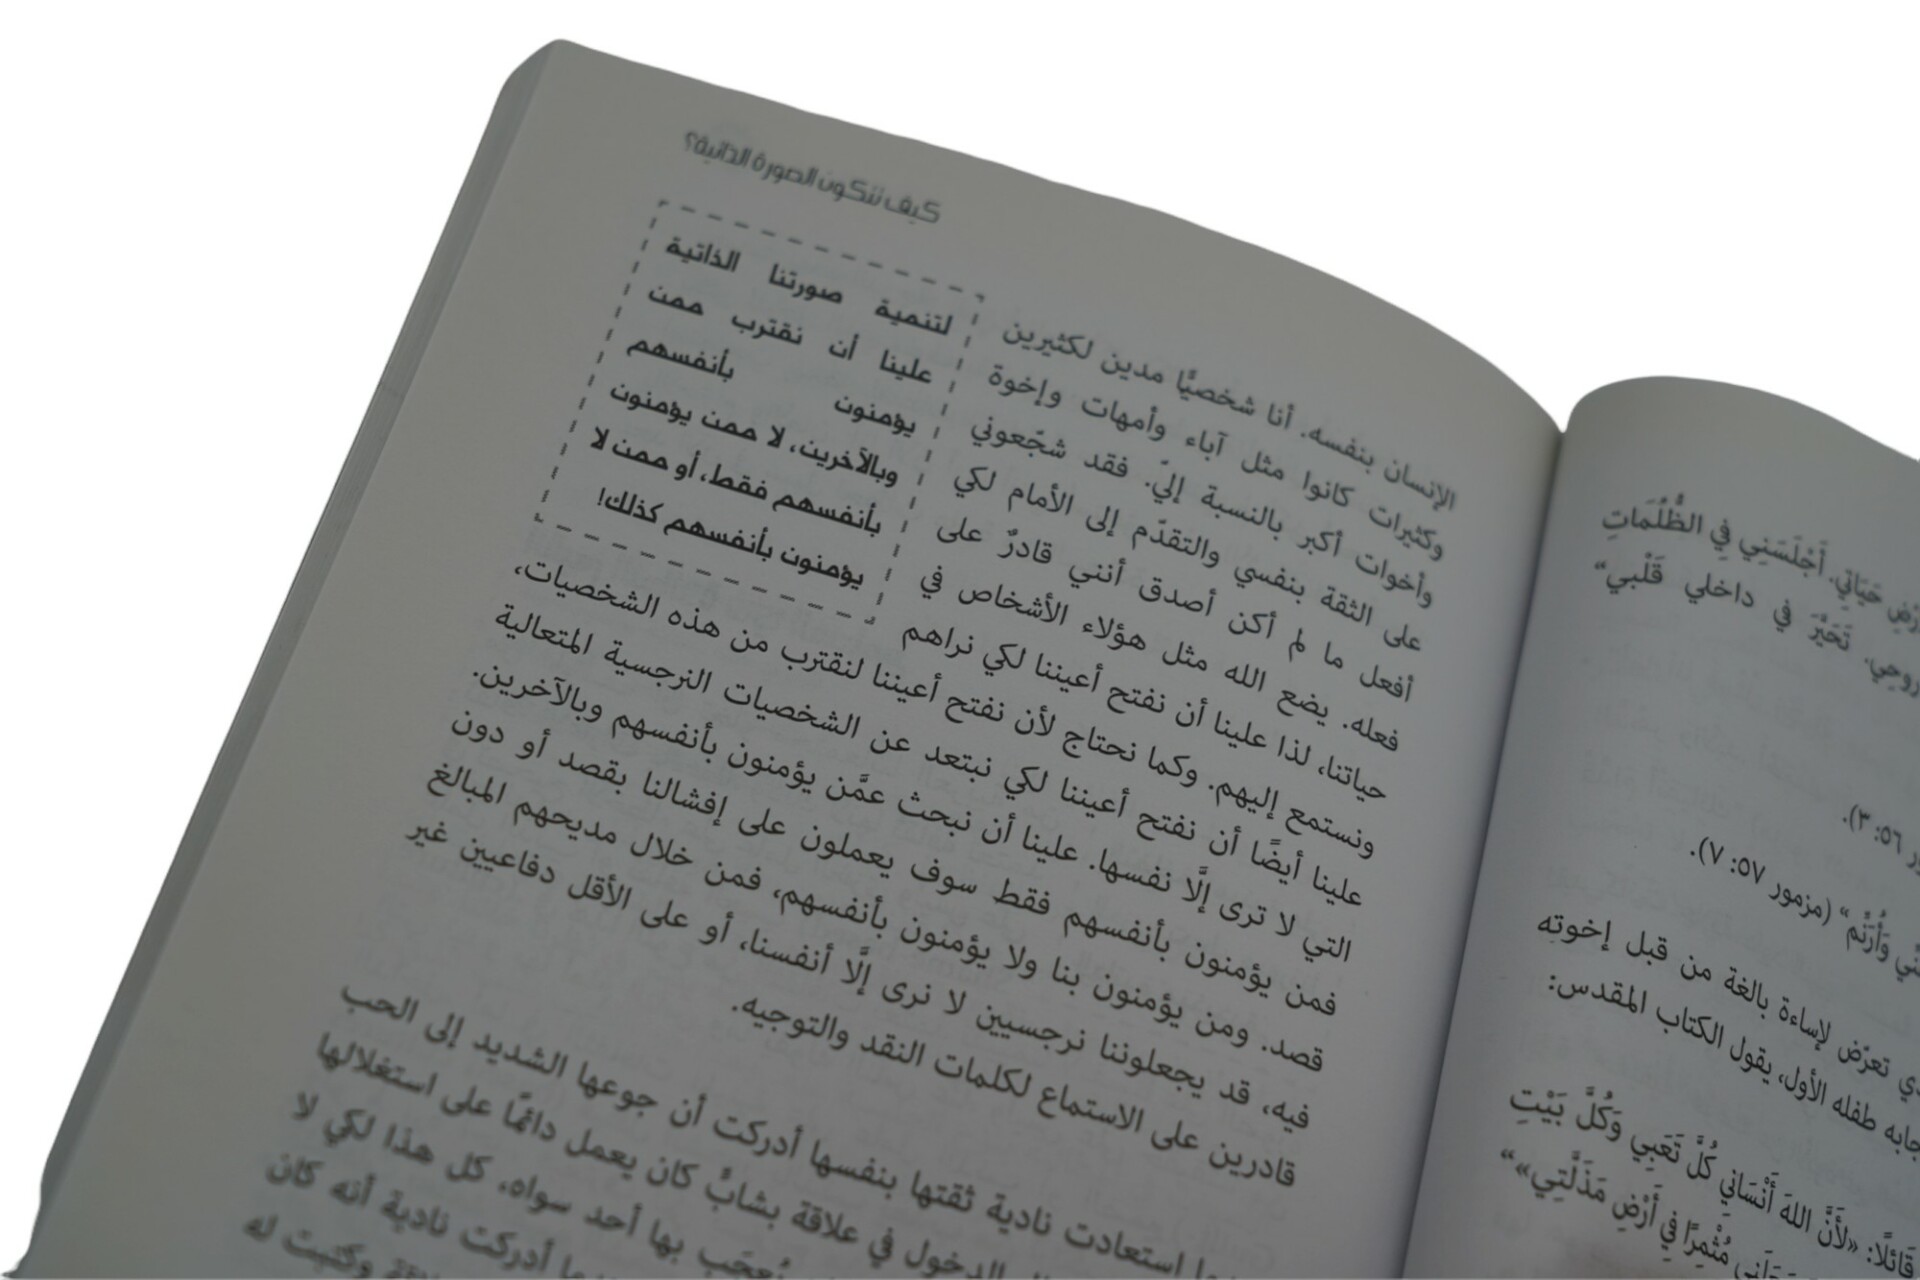 كيف تتكون الصورة الذاتية؟
لتنمية صورتنا الذاتية
علينا أن نقترب ممن
يؤمنون بأنفسهم
وبالآخرين، لا ممن يؤمنون
بأنفسهم فقط، أو ممن لا
يؤمنون بأنفسهم كذلك!
الإنسان بنفسه. أنا شخصيًّا مدين لكثيرين
وكثيرات كانوا مثل آباء وأمهات وإخوة
وأخوات أكبر بالنسبة إليّ. فقد شجّعوني
على الثقة بنفسي والتقدّم إلى الأمام لكي
أفعل ما لم أكن أصدق أنني قادرٌ على
فعله. يضع الله مثل هؤلاء الأشخاص في
حياتنا، لذا علينا أن نفتح أعيننا لكي نراهم
ونستمع إليهم. وكما نحتاج لأن نفتح أعيننا لنقترب من هذه الشخصيات،
علينا أيضًا أن نفتح أعيننا لكي نبتعد عن الشخصيات النرجسية المتعالية
التي لا ترى إلَّا نفسها. علينا أن نبحث عمَّن يؤمنون بأنفسهم وبالآخرين.
فمن يؤمنون بأنفسهم فقط سوف يعملون على إفشالنا بقصد أو دون
قصد. ومن يؤمنون بنا ولا يؤمنون بأنفسهم، فمن خلال مديحهم المبالغ
فيه، قد يجعلوننا نرجسيين لا نرى إلَّا أنفسنا، أو على الأقل دفاعيين غير
قادرين على الاستماع لكلمات النقد والتوجيه.
استعادت نادية ثقتها بنفسها أدركت أن جوعها الشديد إلى الحب
الدخول في علاقة بشابٍّ كان يعمل دائمًا على استغلالها
يُعجَب بها أحد سواه، كل هذا لكي لا
أدركت نادية أنه كان
وكتبت له
حَيَاتِي. أَجْلَسَنِي فِي الظُّلُمَاتِ
رُوحِي. تَحَيَّرَ فِي داخلي قَلْبي"
٥٦: ٣).
وَأُرَنِّم" (مزمور ٥٧: ٧).
تعرّض لإساءة بالغة من قبل إخوتِه
طفله الأول، يقول الكتاب المقدس:
قَائلًا: «لأَنَّ اللهَ أَنْسَاني كُلَّ تَعَبِي وَكُلَّ بَيْتِ
مُثْمِرًا فِي أَرْضِ مَذَلَّتِي»"